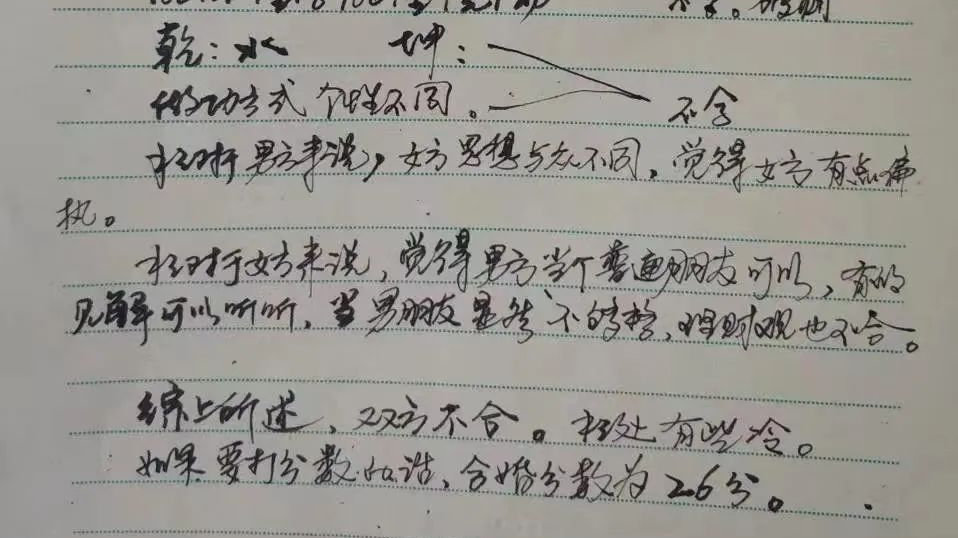 乾：水 坤：
做功方式 个性不同。 不合
相对于男方来说，女方思想与众不同，觉得女方有点偏
执。
相对于女方来说，觉得男方当个普通朋友可以，有的
见解可以听听，当男朋友显然不够格，理财观也不合。
综上所述，双方不合。相处有些冷。
如果要打分数的话，合婚分数为26分。